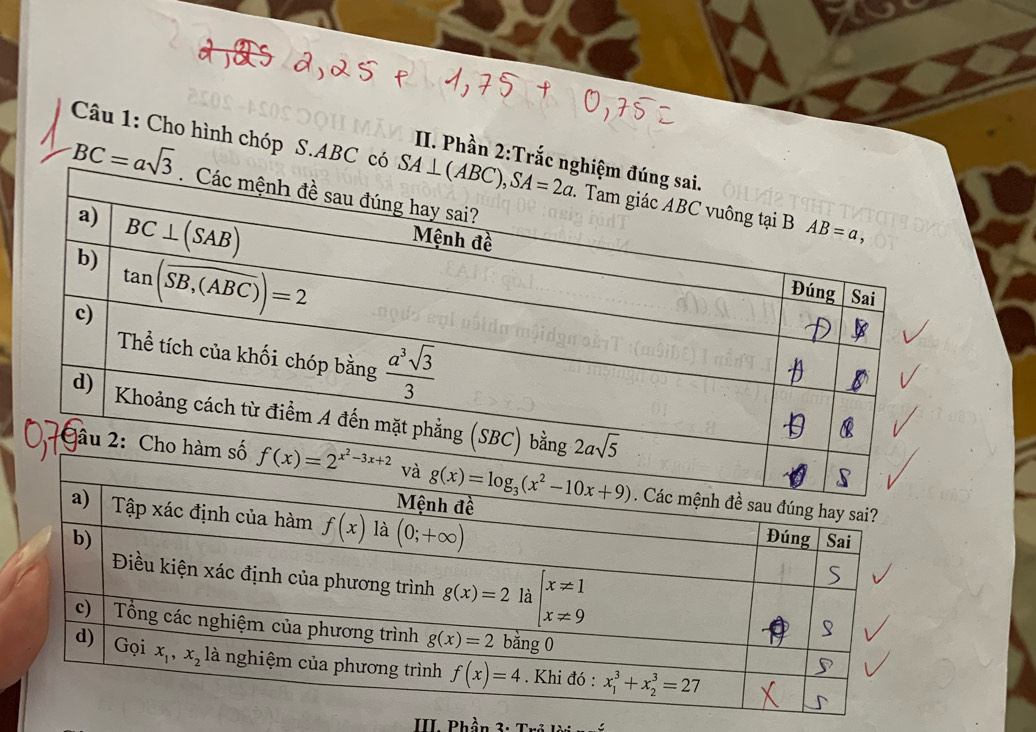 2,25 2,25 + 1,75 + 0,75 =
II. Phần 2:Trắc nghiệm đúng sai.
1
Câu 1: Cho hình chóp S.ABC có SA ⊥ (ABC), SA = 2a. Tam giác ABC vuông tại B AB = a,
BC = a√3. Các mệnh đề sau đúng hay sai?
Mệnh đề Đúng Sai
a) BC ⊥ (SAB) Đ ✓
b) tan(SB,(ABC)) = 2 Đ ✓
c) Thể tích của khối chóp bằng a³√3/3 Đ ✓
d) Khoảng cách từ điểm A đến mặt phẳng (SBC) bằng 2a√5 S ✓
0,75
Câu 2: Cho hàm số f(x) = 2^(x²−3x+2) và g(x) = log₃(x² −10x+9). Các mệnh đề sau đúng hay sai?
Mệnh đề Đúng Sai
a) Tập xác định của hàm f(x) là (0;+∞) S ✓
b) Điều kiện xác định của phương trình g(x) = 2 là [x ≠ 1
x ≠ 9 S ✓
c) Tổng các nghiệm của phương trình g(x) = 2 bằng 0 S ✓
d) Gọi x₁, x₂ là nghiệm của phương trình f(x) = 4. Khi đó : x₁³ + x₂³ = 27 X S
III. Phần 3: Trả lời